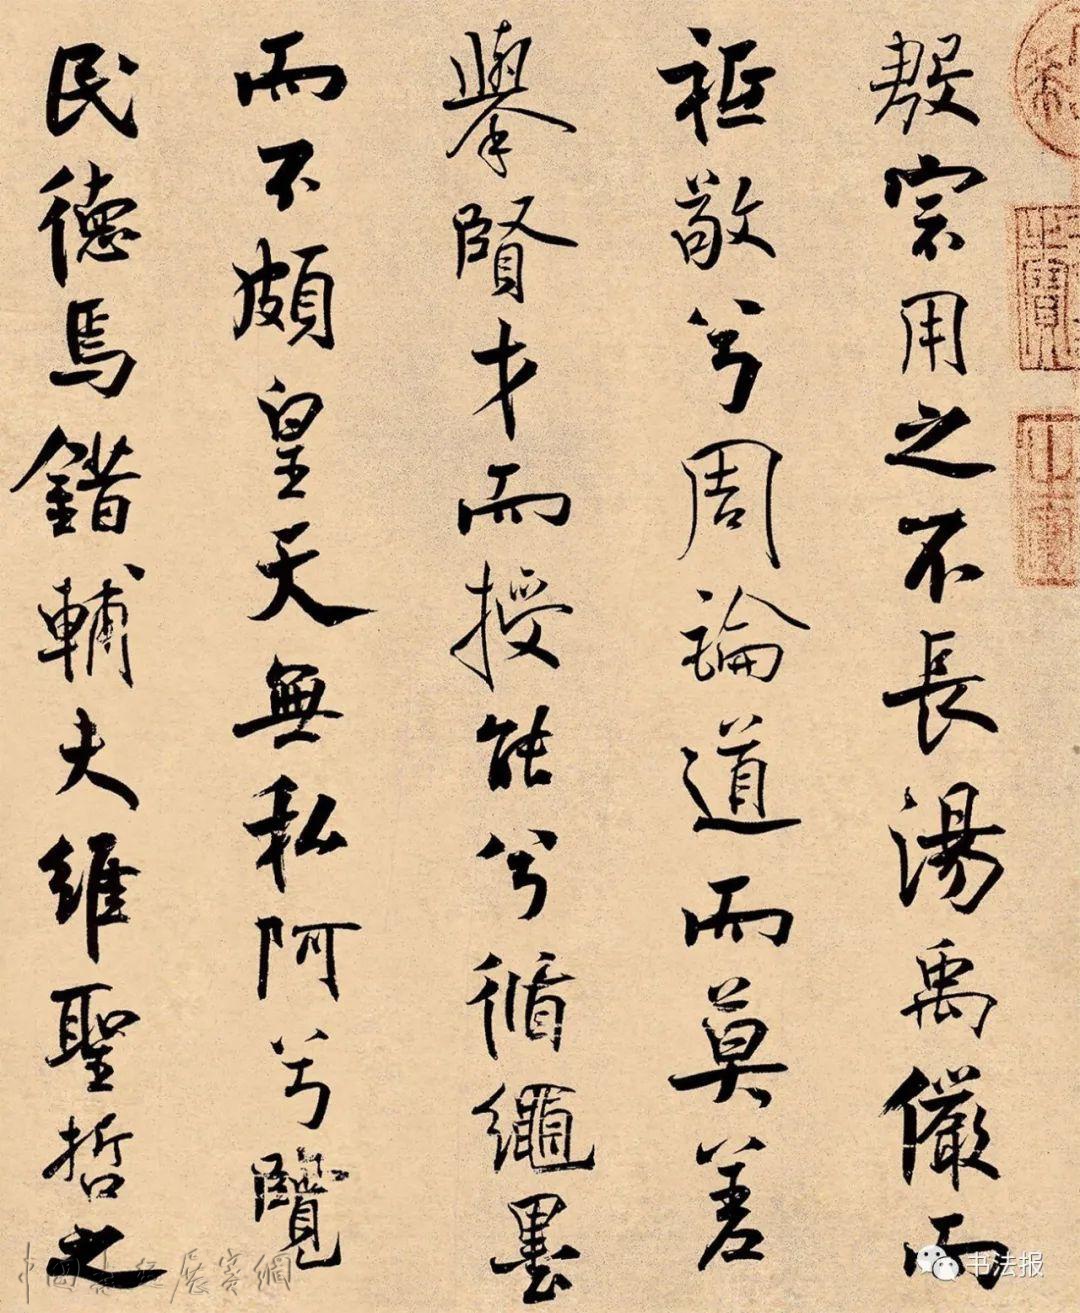 殷宗用之不長湯禹儼而
祗敬兮周論道而莫差
舉賢才而授能兮循繩墨
而不頗皇天無私阿兮覽
民德焉錯輔夫維聖哲之
书法报